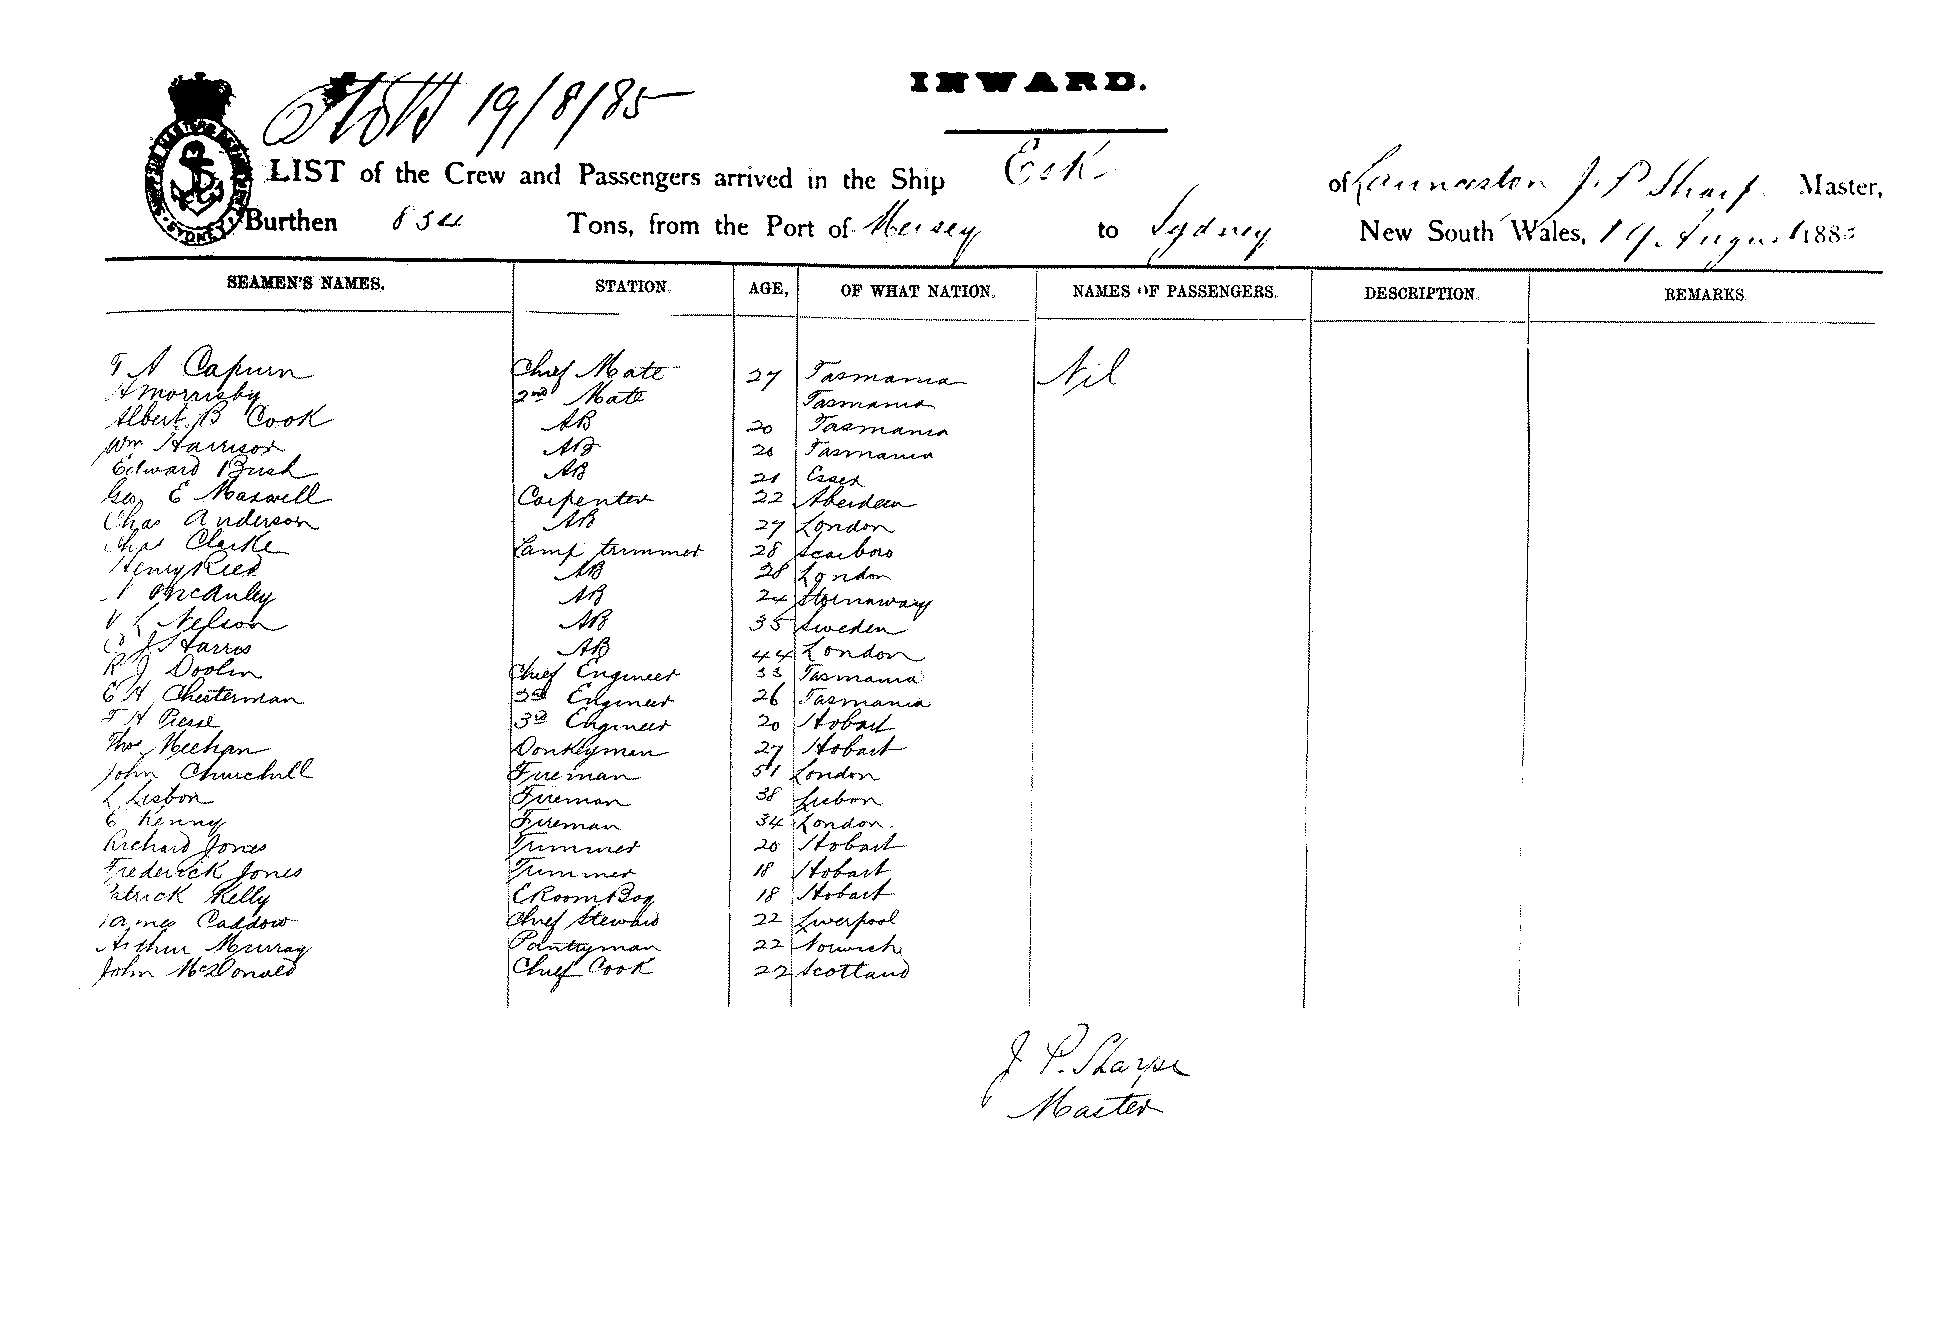 INWARD.
19/8/85
LIST of the Crew and Passengers arrived in the Ship Esk of Launceston J. P Sharp Master,
Burthen 854 Tons, from the Port of Mersey to Sydney New South Wales, 19 August 1885
SYDNEY
SEAMEN'S NAMES. STATION. AGE, OF WHAT NATION. NAMES OF PASSENGERS. DESCRIPTION. REMARKS.
T A Capurn Chief Mate 27 Tasmania Nil
A Morrisby 2nd Mate Tasmania
Albert B Cook AB 20 Tasmania
Wm Harrison AB 20 Tasmania
Edward Bush AB 21 Essex
Geo E Maxwell Carpenter 22 Aberdeen
Chas Anderson AB 27 London
Chas Clarke Lamp trimmer 28 Scarboro
Henry Ried AB 28 London
McAuley AB 24 Stornaway
L Nelson AB 35 Sweden
C J Harris AB 44 London
R J Doolin Chief Engineer 33 Tasmania
E H Chesterman Engineer 26 Tasmania
T H Piesse 3rd Engineer 20 Hobart
Thos Meehan Donkeyman 27 Hobart
John Churchill Fireman 51 London
L Lisbon Fireman 38 Lisbon
E Kenny Fireman 34 London.
Richard Jones Trimmer 20 Hobart
Frederick Jones Trimmer 18 Hobart
Patrick Kelly E Room Boy 18 Hobart
James Caddow Chief Steward 22 Liverpool
Arthur Murray Pantryman 22 Norwich
John McDonald Chief Cook 27 Scotland
J P. Sharpe
Master